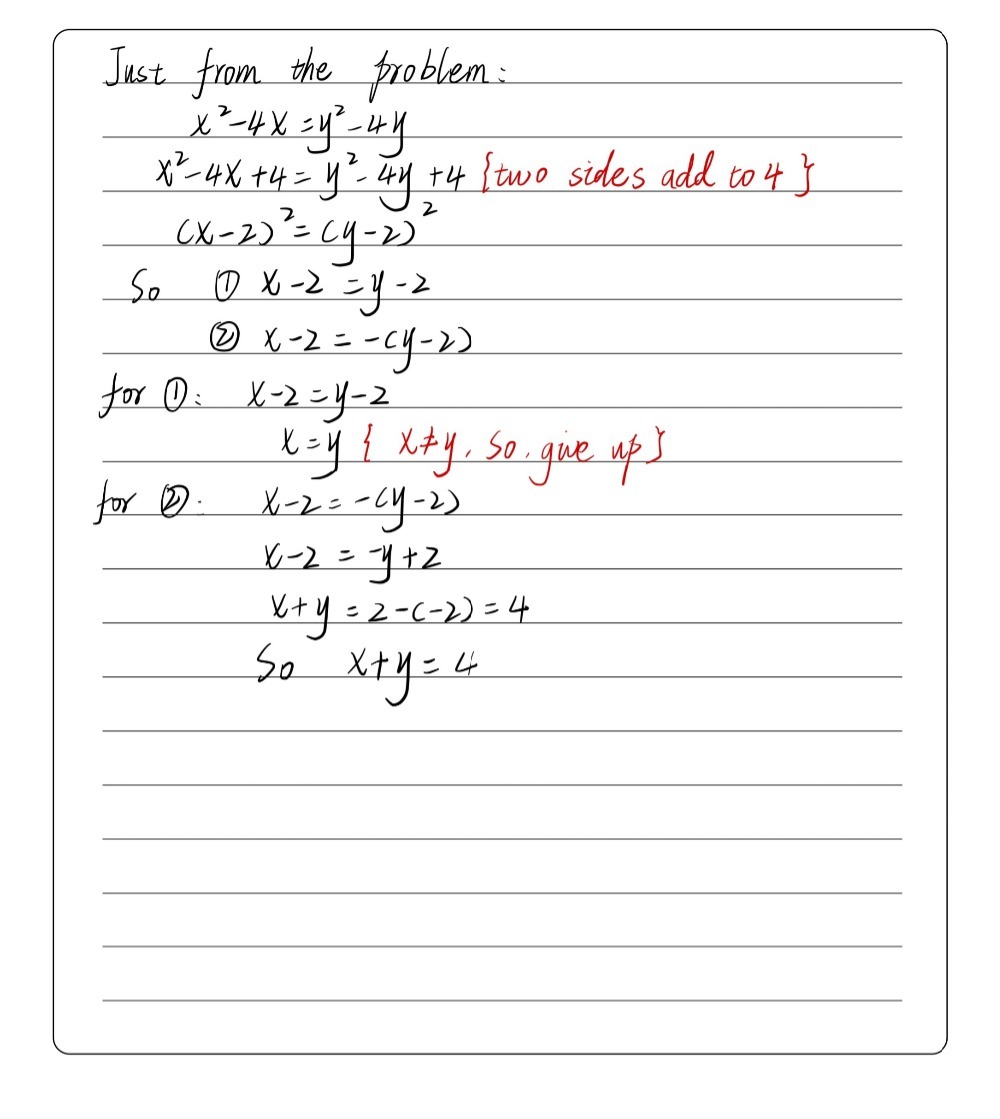 Just from the problem:
x²-4x=y²-4y
x²-4x+4=y²-4y+4 {two sides add to 4}
(x-2)²=(y-2)²
So ① x-2=y-2
② x-2=-(y-2)
for ①: x-2=y-2
x=y { x≠y, so, give up}
for ②: x-2=-(y-2)
x-2=-y+2
x+y=2-(-2)=4
So x+y=4